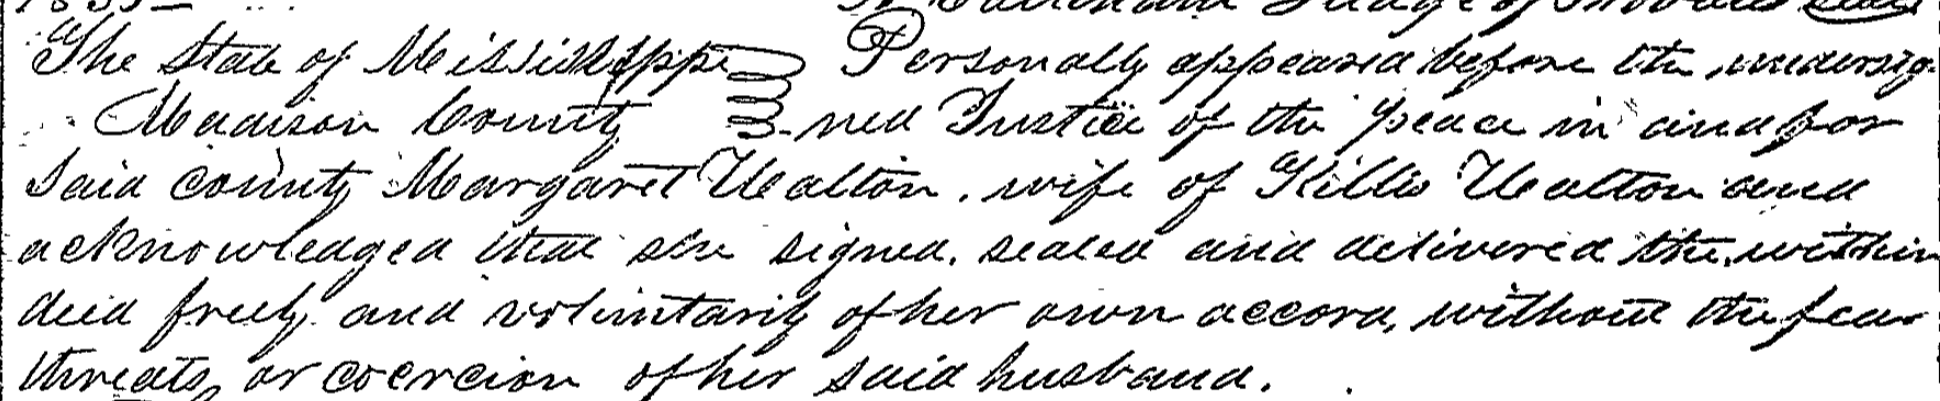 1835 Judge of Probate seal
The State of Mississippi Personally appeared before the undersig-
Madison County -ned Justice of the peace in and for
said county Margaret Walton, wife of Killis Walton and
acknowledged that she signed, sealed and delivered the within
deed freely and voluntarily of her own accord, without the fear
threats, or coercion of her said husband.